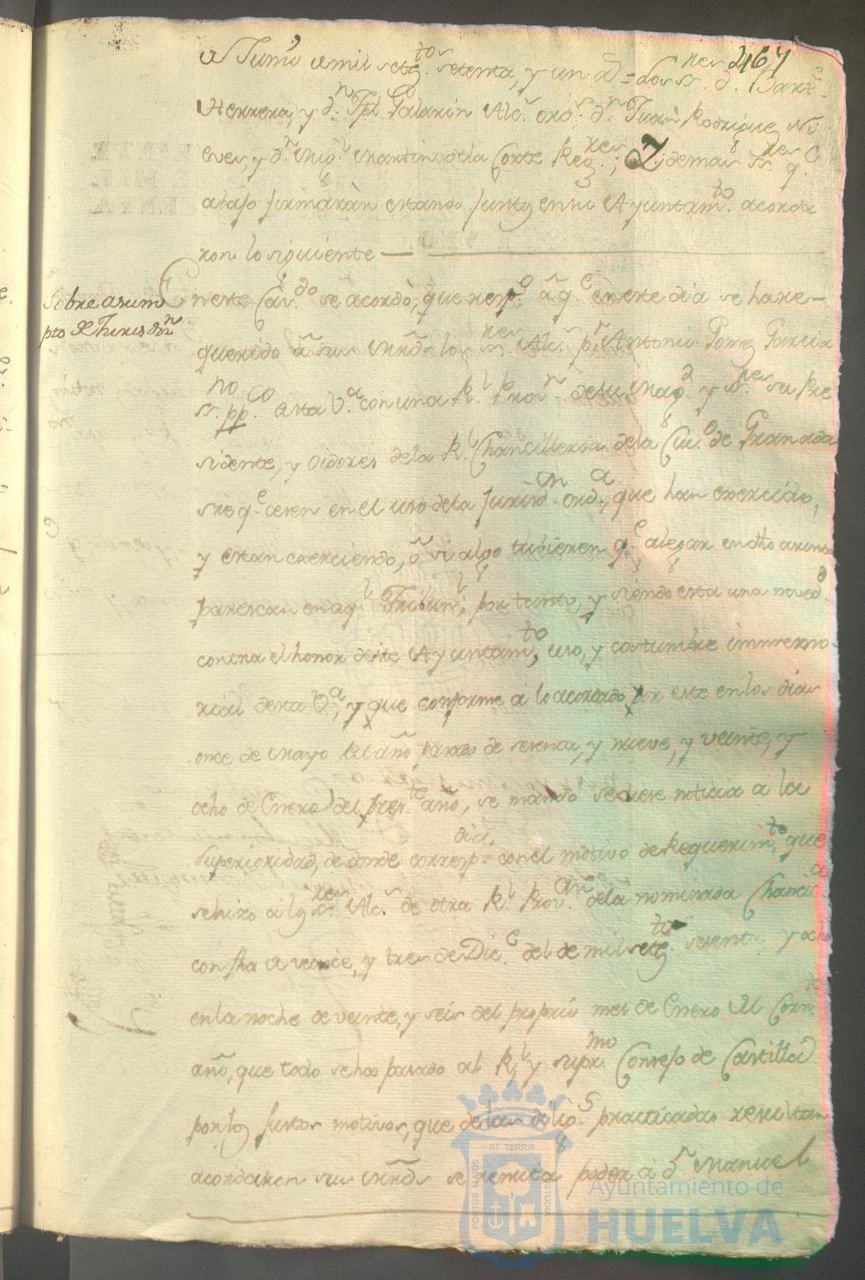 467
de Junio de mil sett.os setenta, y un a.s = Los ss.res d.n Bart.e
Herrera, y d.n Jph Palarin Alc.s ord.s d.n Juan Rodriguez Ni
eves y d.n Mig.l Martin de la Corte Reg.res; y demas ss.res q.e
abajo firmaràn estando juntos en su Ayuntam.to acorda
ron lo siguiente
Sobre asum
pto de Jurisd.n
En este Cav.do se acordò, que resp.to a q.e en este dia se ha re-
querido à sus mrds los ss.res Alc.s p.r Antonio Ponz Garcia
ss.no pp.co de esta V.a con una R.l Prov.n de su Mag.d y ss.res su Pre
sidente, y Oidores de la R.l Chancilleria de la Ciu.d de Granada
sre q.e cesen en el uso de la Jurisd.on ord.a, que han exercido,
y estan exerciendo, ò si algo tubieren q.e alegar en dho asum
parescan en aq.l Tribun.l; por tanto, y siendo esta una noved.d
contra el honor de este Ayuntam.to, uso, y costumbre immemo-
rial de esta V.a, y que conforme à lo acordado por este en los dias
once de Mayo del año pasado de sesenta, y nueve, y veinte, y
ocho de Enero del pres.te año, se mandò se diese noticia a la
Superioridad, de donde corresp.dia con el motivo de Requerim.to que
se hizo à los ss.res Alc.s de otra R.l Prov.on de la nominada Chanci.a
con fha de veinte, y tres de Dic.e del de mil sett.os sesenta, y ocho
en la noche de veinte, y seis del proprio mes de Enero del Corr.te
año, que todo se ha pasado al R.l y supr.mo Consejo de Castilla
por los justos motivos, que de las dilig.s practicadas resultan
acordaron sus mrds se remita poder à d.n Manuel
PORTUS MARIS ET TERRÆ CUSTODIA
Ayuntamiento de
HUELVA